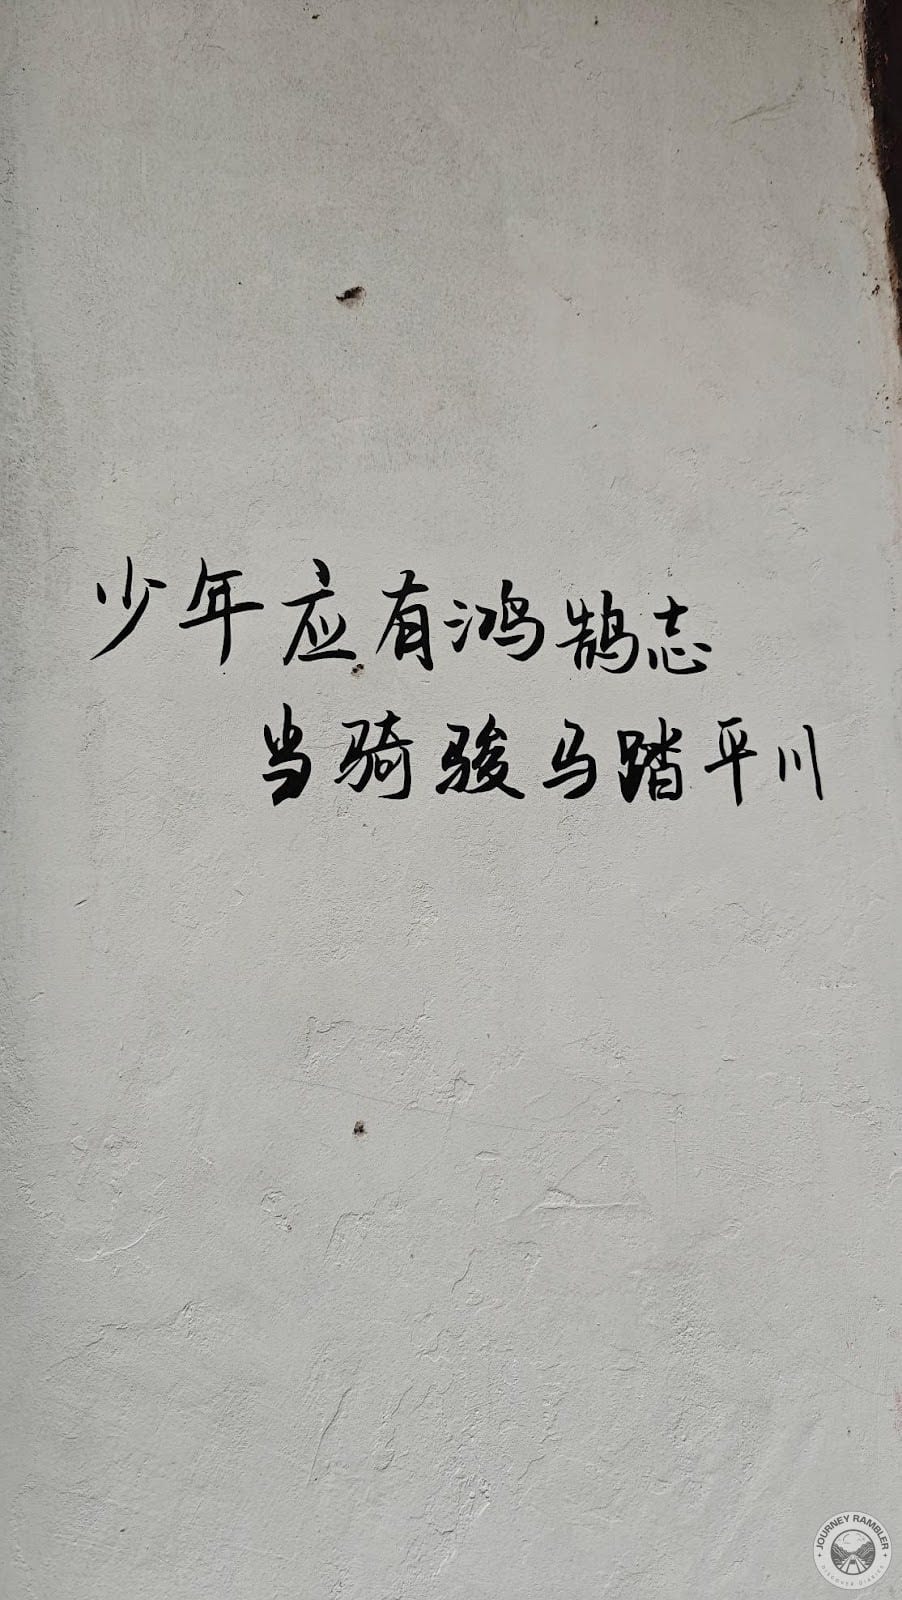 少年应有鸿鹄志
当骑骏马踏平川
JOURNEY RAMBLER
DISCOVER DIARIES